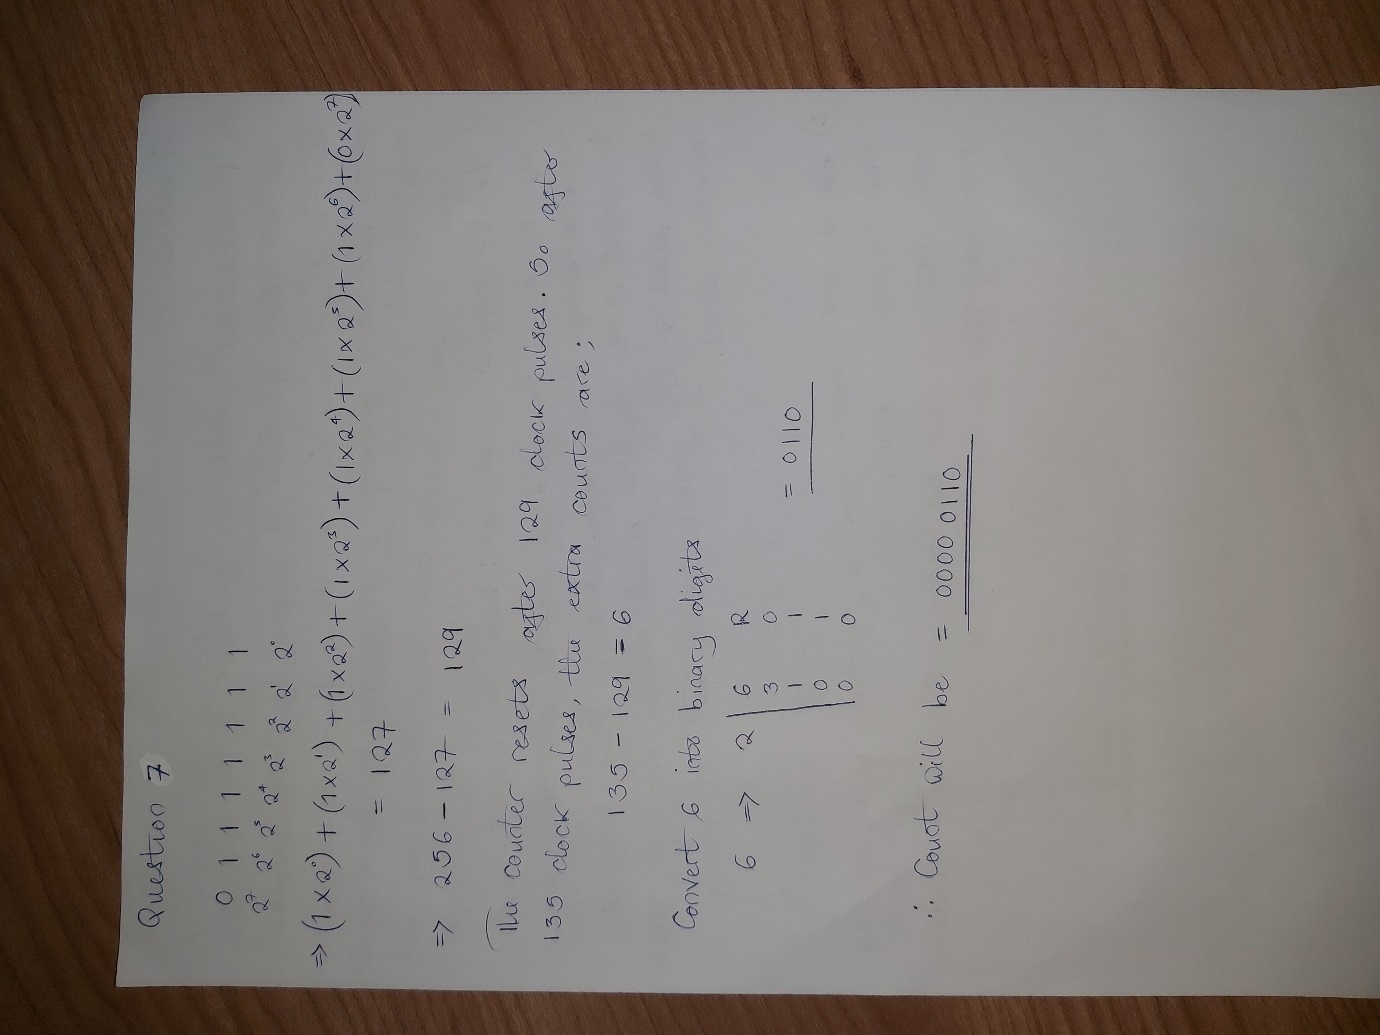 Question 7
0 1 1 1 1 1 1 1
2⁷ 2⁶ 2⁵ 2⁴ 2³ 2² 2¹ 2⁰
⇒ (1×2⁰) + (1×2¹) + (1×2²) + (1×2³) + (1×2⁴) + (1×2⁵) + (1×2⁶) + (0×2⁷)
= 127
⇒ 256 - 127 = 129
The counter resets after 129 clock pulses. So after
135 clock pulses, the extra counts are;
135 - 129 = 6
Convert 6 into binary digits
6 ⇒ 2 6 R
3 0
1 1
0 1 = 0110
0 0
∴ Count will be = 0000 0110